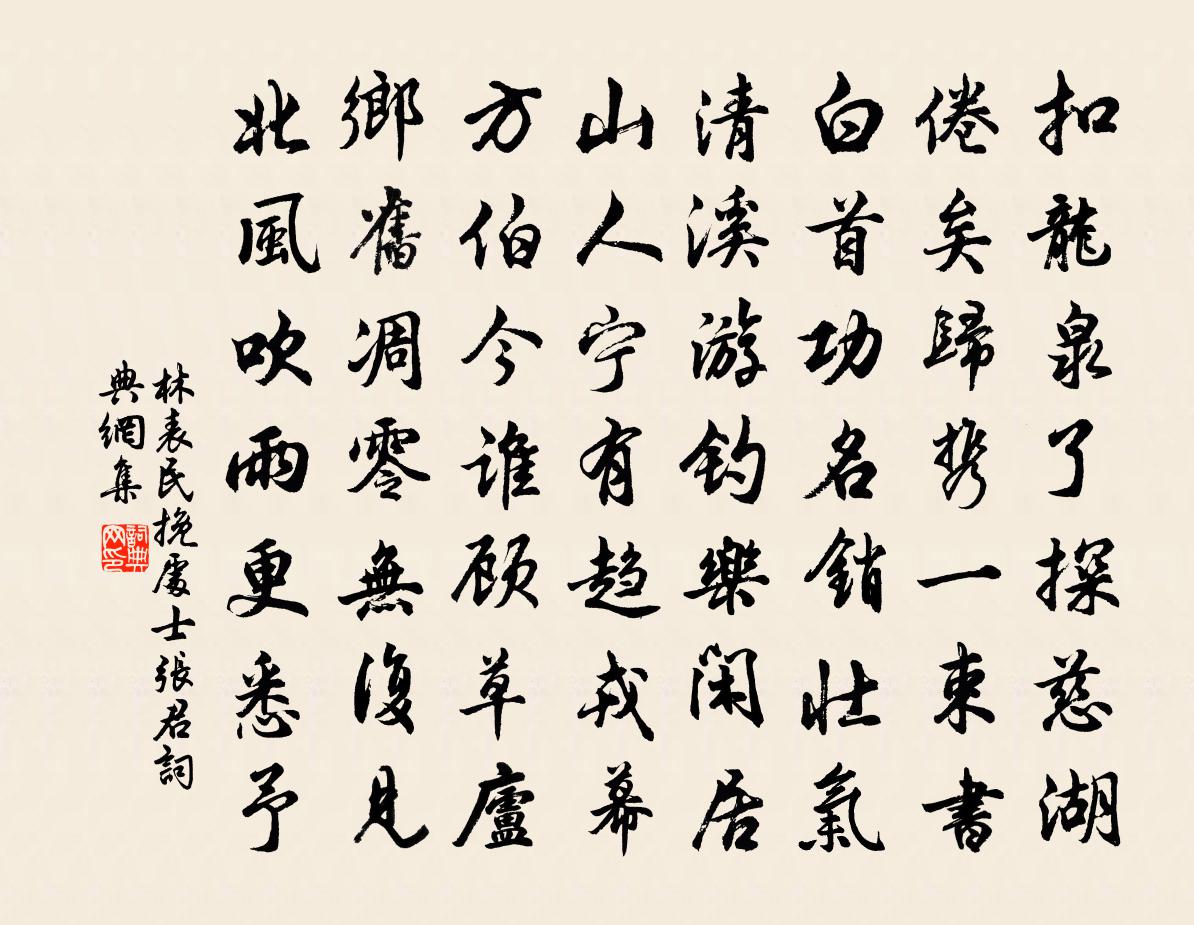 扣龍泉了探慈湖
倦矣歸携一束書
白首功名銷壯氣
清溪游钓樂閑居
山人宁有趋戎幕
方伯今谁顾草廬
鄉舊凋零無復見
北風吹雨更悉予
林表民挽處士張君詞
典網集
詞典网印